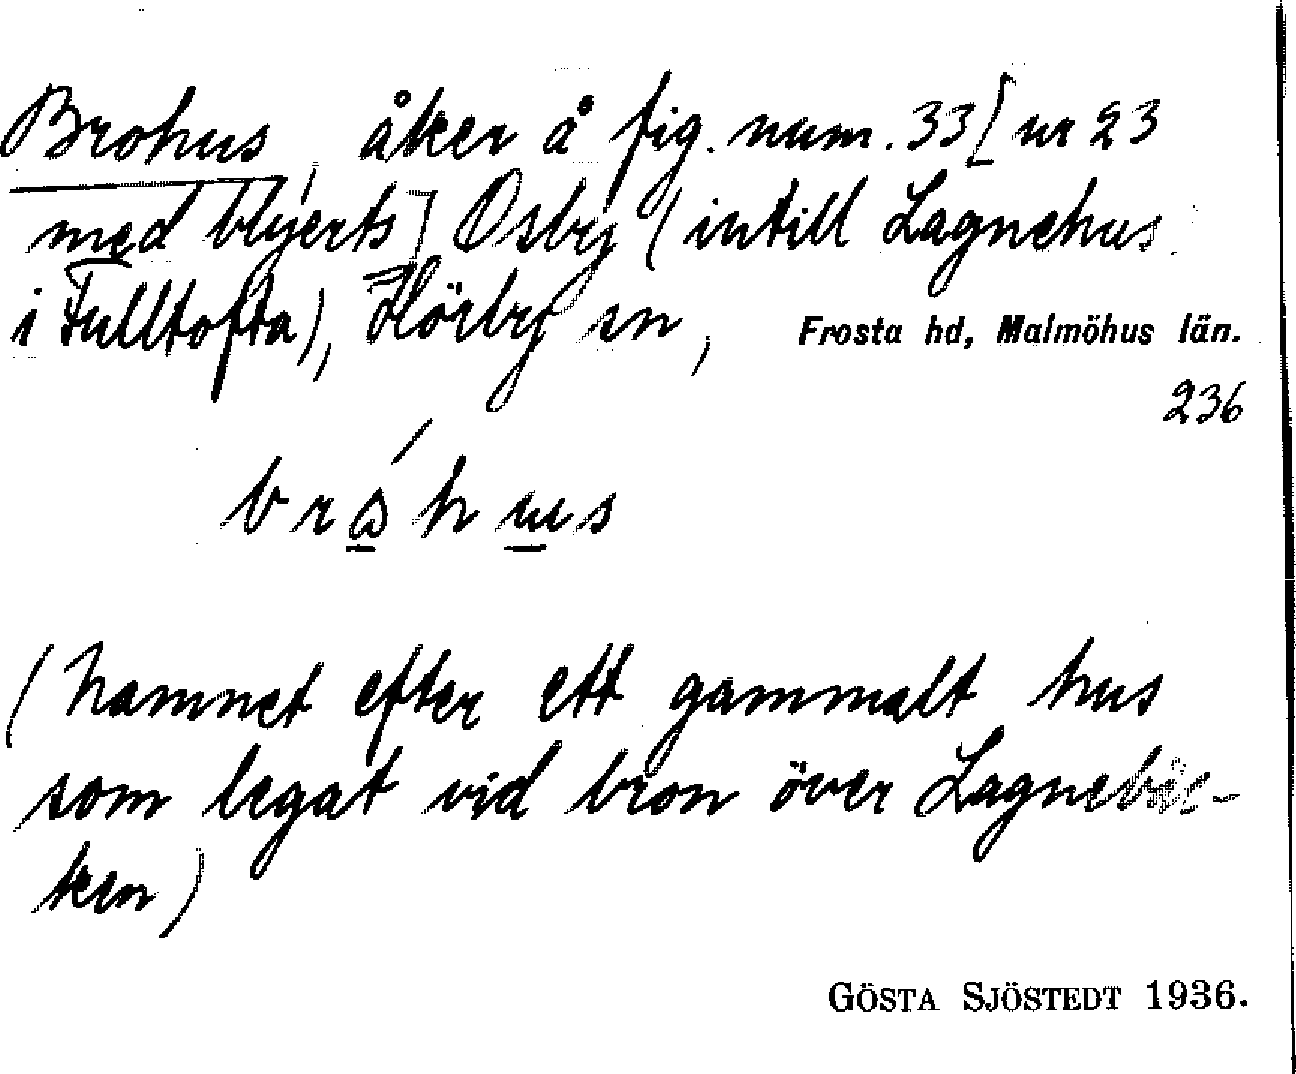 Brohus, åker å fig. num. 33 [nr 23
med blyerts] Osby (intill Lagnehus
i Fulltofta), Hörby sn, Frosta hd, Malmöhus län.
236
(namnet efter ett gammalt hus
som legat vid bron över Lagnebäc-
ken)
GÖSTA SJÖSTEDT 1936.